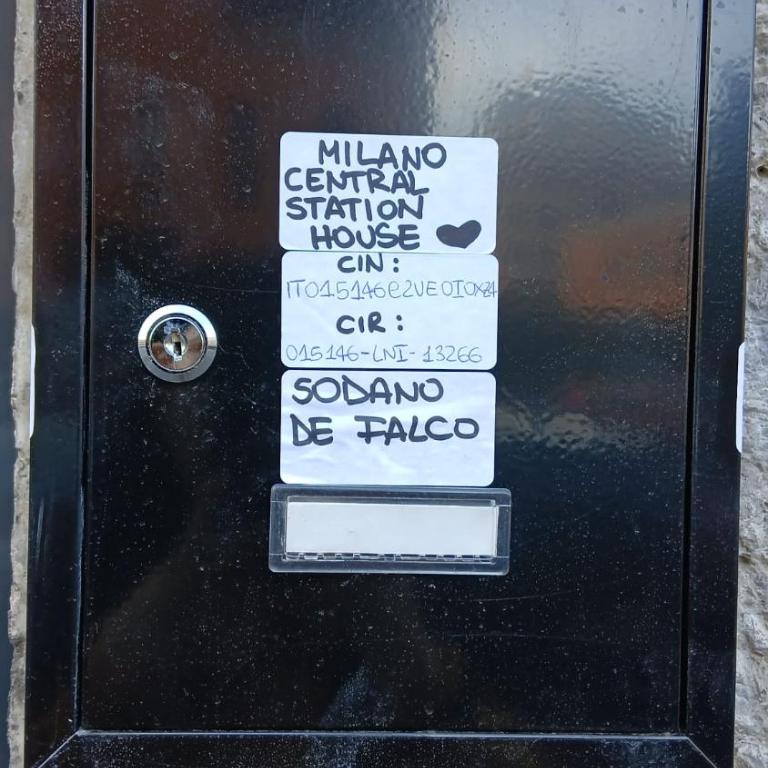 MILANO
CENTRAL
STATION
HOUSE
CIN:
IT015146C2VE0IOXZ4
CIR:
015146-LNI-13266
SODANO
DE FALCO